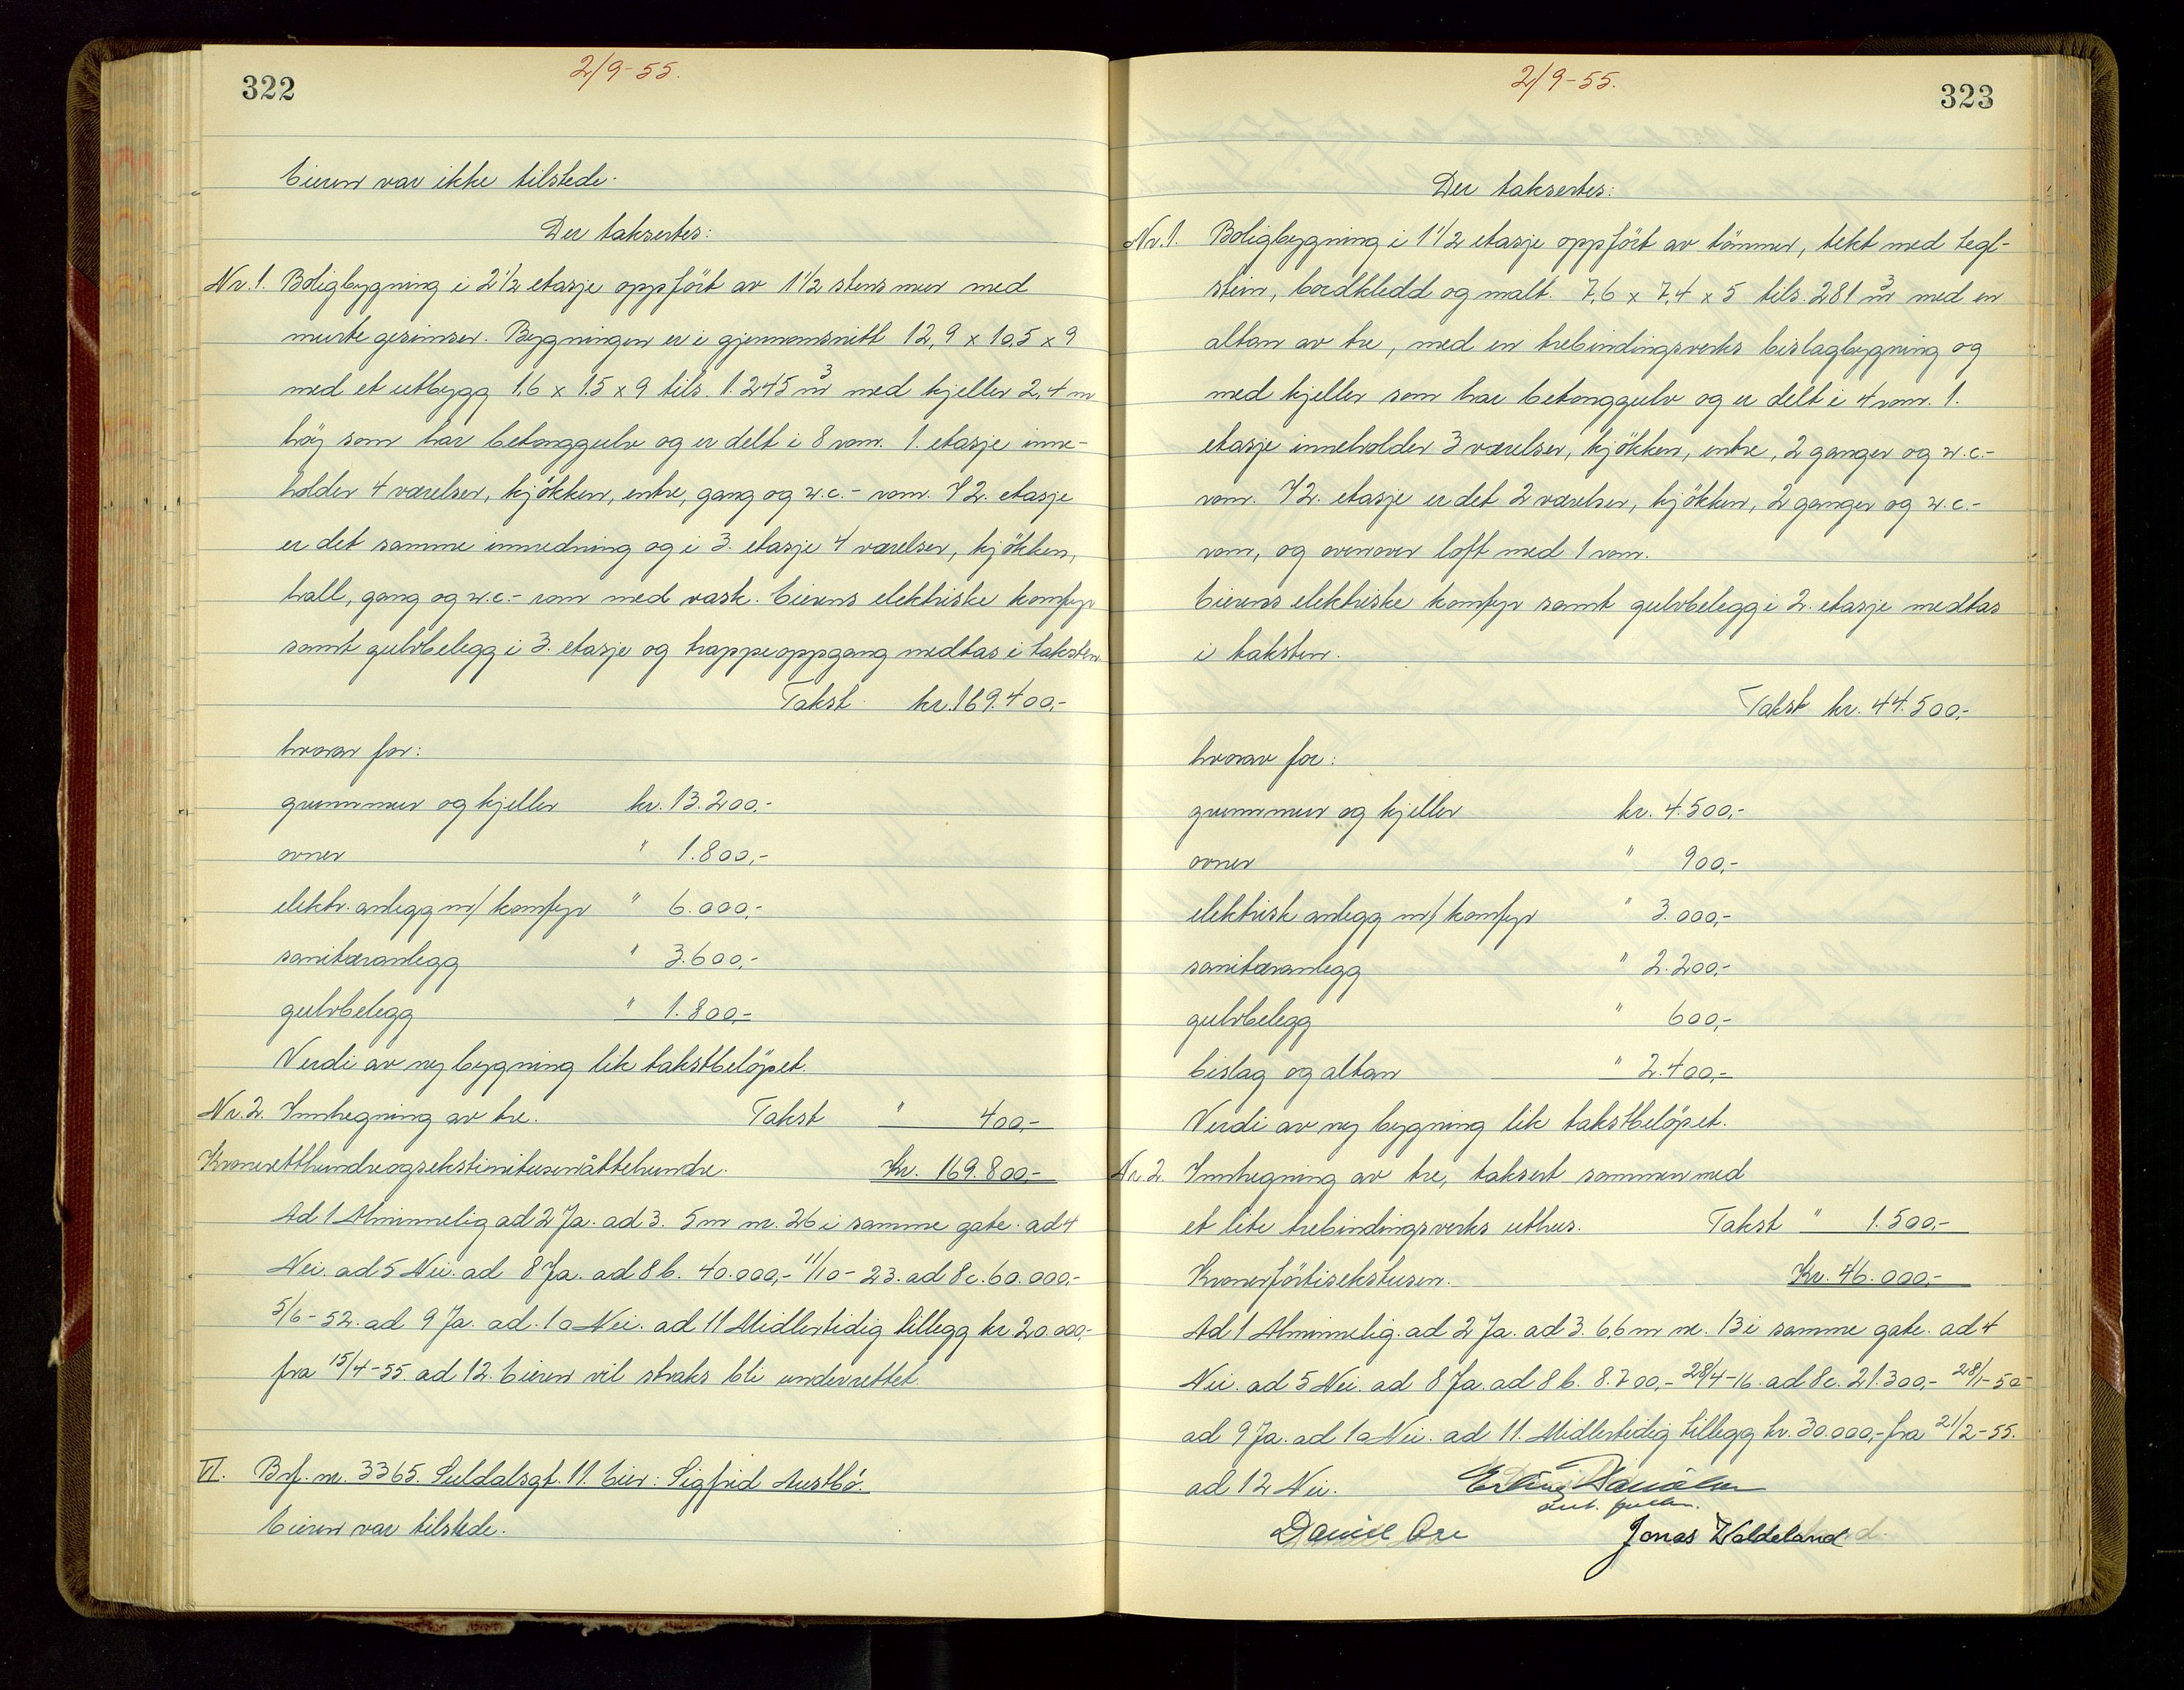 322
2/9-55.
Eieren var ikke tilstede.
Der taksertes:
Nr. 1. Boligbygning i 2 1/2 etasje oppfört av 1 1/2 stens mur med
murte gesimser. Bygningen er i gjennomsnitt 12,9 x 10,5 x 9
med et utbygg 1,6 x 1,5 x 9 tils. 1.245 m³ med kjeller 2,4 m
höy som har betonggulv og er delt i 8 rom. 1. etasje inne-
holder 4 værelser, kjökken, entre, gang og w.c.- rom. I 2. etasje
er det samme innredning og i 3. etasje 4 værelser, kjökken,
hall, gang og w.c.- rom med vask. Eierens elektriske komfyr
samt gulvbelegg i 3. etasje og trappeoppgang medtas i taksten.
Takst kr. 169.400,-
hvorav for:
grunnmur og kjeller kr. 13.200,-
ovner " 1.800,-
elektr. anlegg m/ komfyr " 6.000,-
sanitæranlegg " 3.600,-
gulvbelegg " 1.800,-
Verdi av ny bygning lik takstbelöpet.
Nr. 2. Innhegning av tre. Takst " 400,-
Kroneretthundreogsekstinitusenåttehundre. Kr. 169.800,-
Ad 1 Alminnelig ad 2 Ja. ad 3. 5 m nr. 26 i samme gate. ad 4
Nei. ad 5 Nei. ad 8 Ja. ad 8 b. 40.000,- 11/10-23. ad 8c. 60.000,-
5/6-52. ad 9 Ja. ad. 10 Nei. ad 11 Midlertidig tillegg kr 20.000,-
fra 15/4-55. ad 12. Eieren vil straks bli underrettet.
VI. Brf. nr. 3365. Suldalsgt. 11. Eier: Sigfrid Austbö.
Eieren var tilstede.
2/9-55.
323
Der taksertes:
Nr. 1. Boligbygning i 1 1/2 etasje oppfört av tömmer, tekt med tegl-
stein, bordkledd og malt. 7,6 x 7,4 x 5 tils. 281 m³ med en
altan av tre, med en trebindingsverks bislagbygning og
med kjeller som har betonggulv og er delt i 4 rom. 1.
etasje inneholder 3 værelser, kjökken, entre, 2 ganger og w.c.-
rom. I 2. etasje er det 2 værelser, kjökken, 2 ganger og w.c.-
rom, og ovenover loft med 1 rom.
Eierens elektriske komfyr samt gulvbelegg i 2. etasje medtas
i taksten.
Takst kr. 44.500,-
hvorav for:
grunnmur og kjeller kr. 4.500,-
ovner " 900,-
elektrisk anlegg m/ komfyr " 3.000,-
sanitæranlegg " 2.200,-
gulvbelegg " 600,-
bislag og altan " 2.400,-
Verdi av ny bygning lik takstbelöpet.
Nr. 2. Innhegning av tre, taksert sammen med
et lite trebindingsverks uthus. Takst " 1.500,-
Kronerförtisekstusen. Kr. 46.000,-
Ad 1 Alminnelig. ad 2 Ja. ad 3. 6,6 m nr. 13 i samme gate. ad 4
Nei. ad 5 Nei. ad 8 Ja. ad 8 b. 8.700,- 28/4-16. ad 8c. 21.300,- 28/1-50-
ad 9 Ja. ad 10 Nei. ad 11. Midlertidig tillegg kr. 30.000,- fra 21/2-55.
ad 12 Nei. Erling
Jonas Waldeland